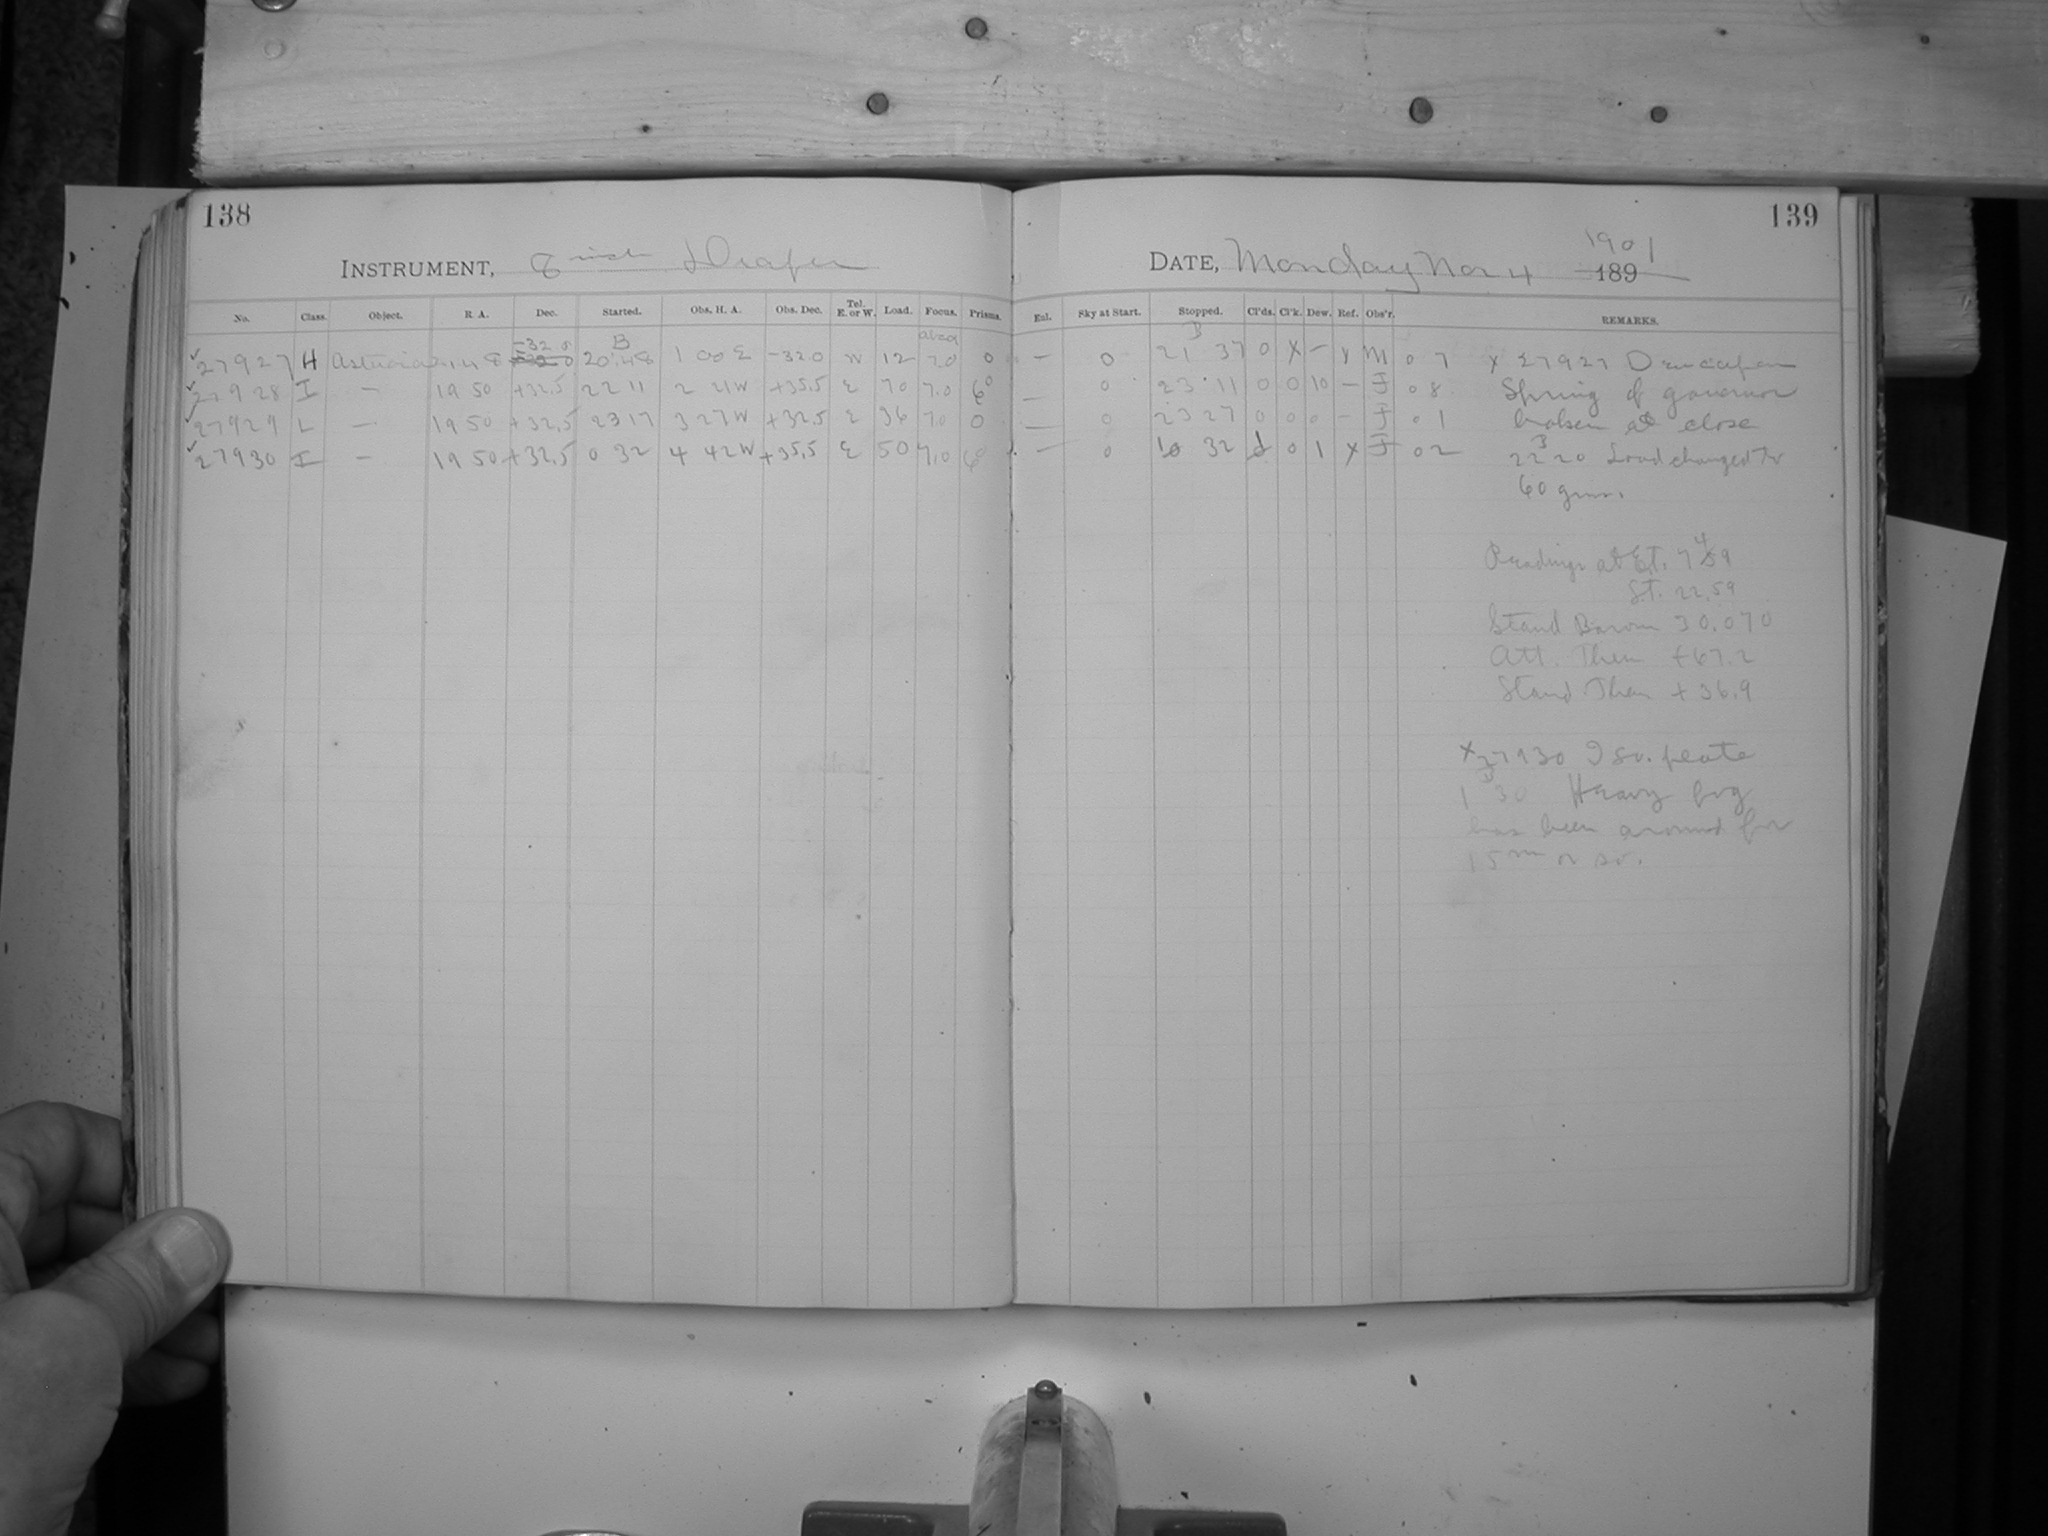 138
INSTRUMENT, 8 inch Draper
No. Class. Object. R. A. Dec. Started. Obs. H. A. Obs. Dec. Tel. E. or W. Load. Focus. Prisms.
27927 H -32.0 B 20 48 1 00 E -32.0 W 12 7.0 0
27928 I — 19 50 +32.5 22 11 2 21 W +35.5 E 70 7.0 6°
27929 L — 19 50 +32.5 23 17 3 27 W +32.5 E 36 7.0 0
27930 I — 19 50 +32.5 0 32 4 42 W +35.5 E 50 7.0 6°
139
DATE, Monday Nov 4 1901 189
Exl. Sky at Start. Stopped. Cl'ds. Cl'k. Dew. Ref. Obs'r. REMARKS.
— 0 B 21 37 0 X — Y M 0 7 X 27927
— 0 23 11 0 0 10 — J 0 8 Spring of governor
— 0 23 27 0 0 0 — J 0 1 broken at close
— 0 32 0 1 X J 0 2 B 22 20 Load changed to
60 gms.
Readings at E.T. 7 59
S.T. 22.59
Stand Barom 30.070
Att. Ther +67.2
Stand Ther +36.9
X 27930 Iso. plate
B 1 30 Heavy fog
has been around for
15 m or so.